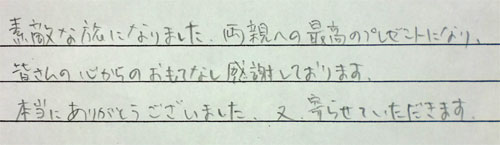 素敵な旅になりました。両親への最高のプレゼントになり、
皆さんの心からのおもてなし感謝しております。
本当にありがとうございました。又、寄らせていただきます。